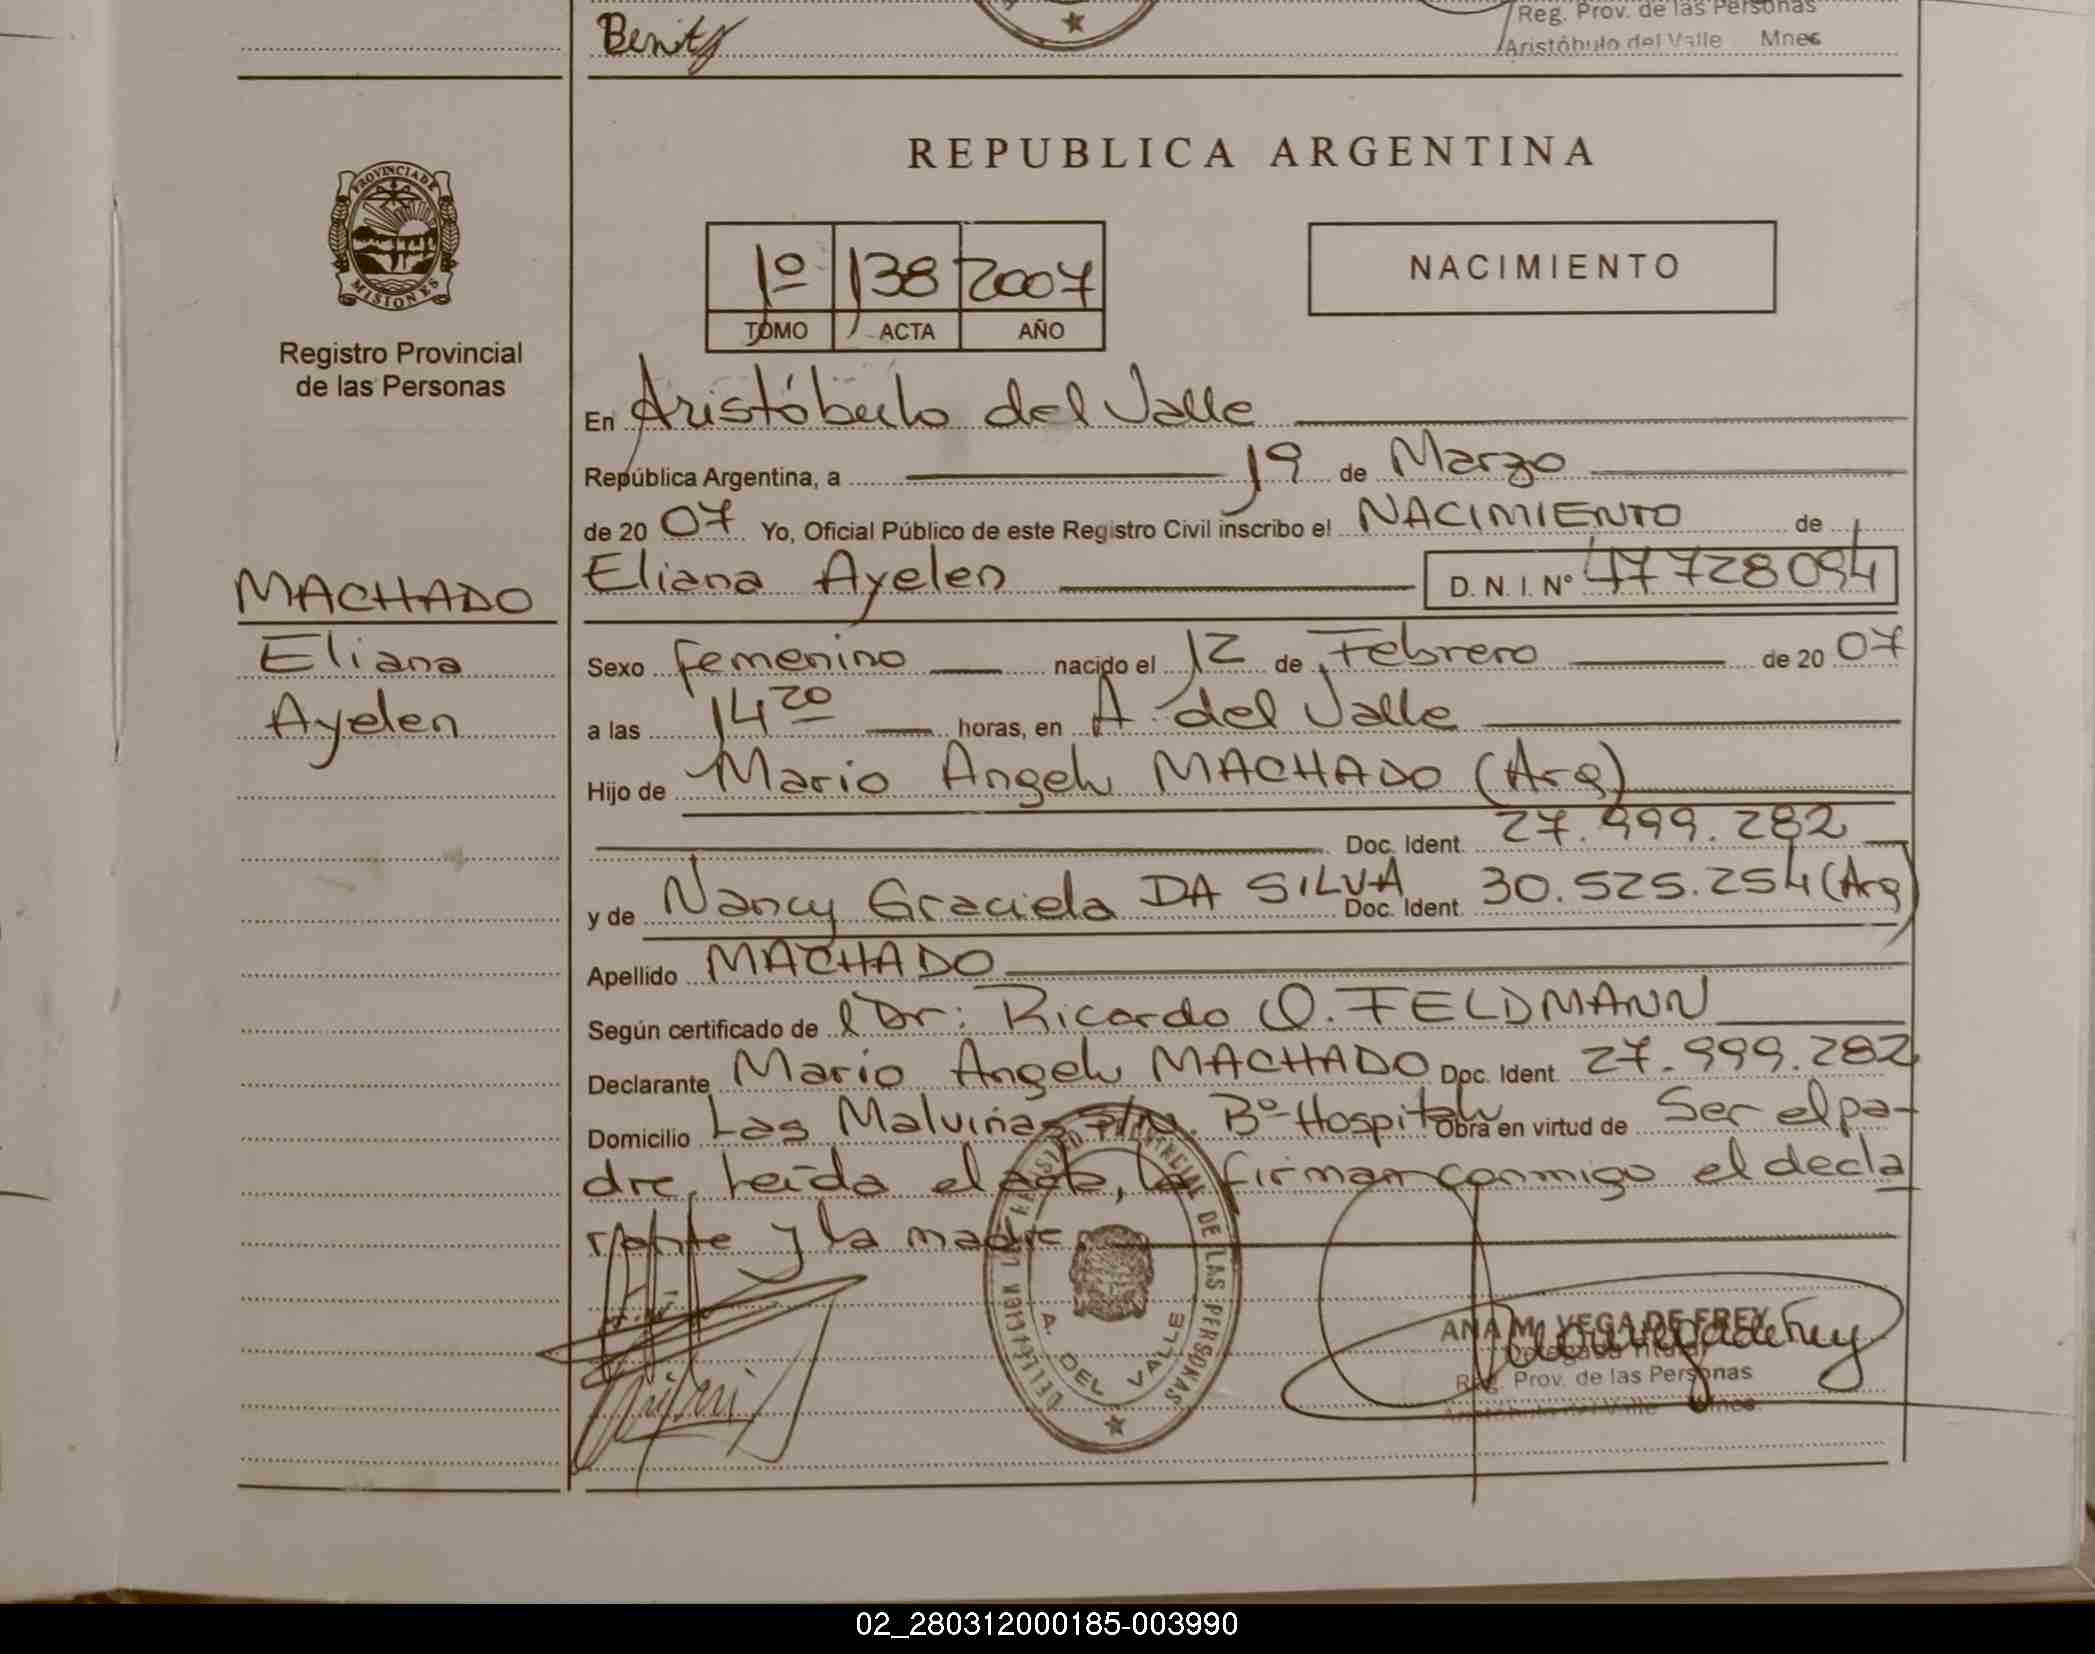 Benitz
Reg. Prov. de las Personas
Aristóbulo del Valle Mnes
PROVINCIA DE
MISIONES
Registro Provincial
de las Personas
REPUBLICA ARGENTINA
1º 138 2007
TOMO ACTA AÑO
NACIMIENTO
En Aristóbulo del Valle
República Argentina, a 19 de Marzo
de 2007 Yo, Oficial Público de este Registro Civil inscribo el NACIMIENTO de
MACHADO
Eliana
Ayelen
Eliana Ayelen D. N. I. Nº 47728094
Sexo femenino nacido el 12 de Febrero de 2007
a las 14 20 horas, en A. del Valle
Hijo de Mario Angel MACHADO (Arg)
Doc. Ident. 27.999.282
y de Nancy Graciela DA SILVA Doc. Ident. 30.525.254 (Arg)
Apellido MACHADO
Según certificado de l Dr: Ricardo O. FELDMANN
Declarante Mario Angel MACHADO Doc. Ident. 27.999.282
Domicilio Las Malvinas s/n. Bº Hospital Obra en virtud de Ser el pa-
dre, Leída el acta, la firman conmigo el decla
rante y la madre
DELEGACION REGISTRO PROVINCIAL DE LAS PERSONAS
A. DEL VALLE
ANA M. VEGA DE FREY
Delegada Titular
Reg. Prov. de las Personas
Aristóbulo del Valle Mnes
02_280312000185-003990